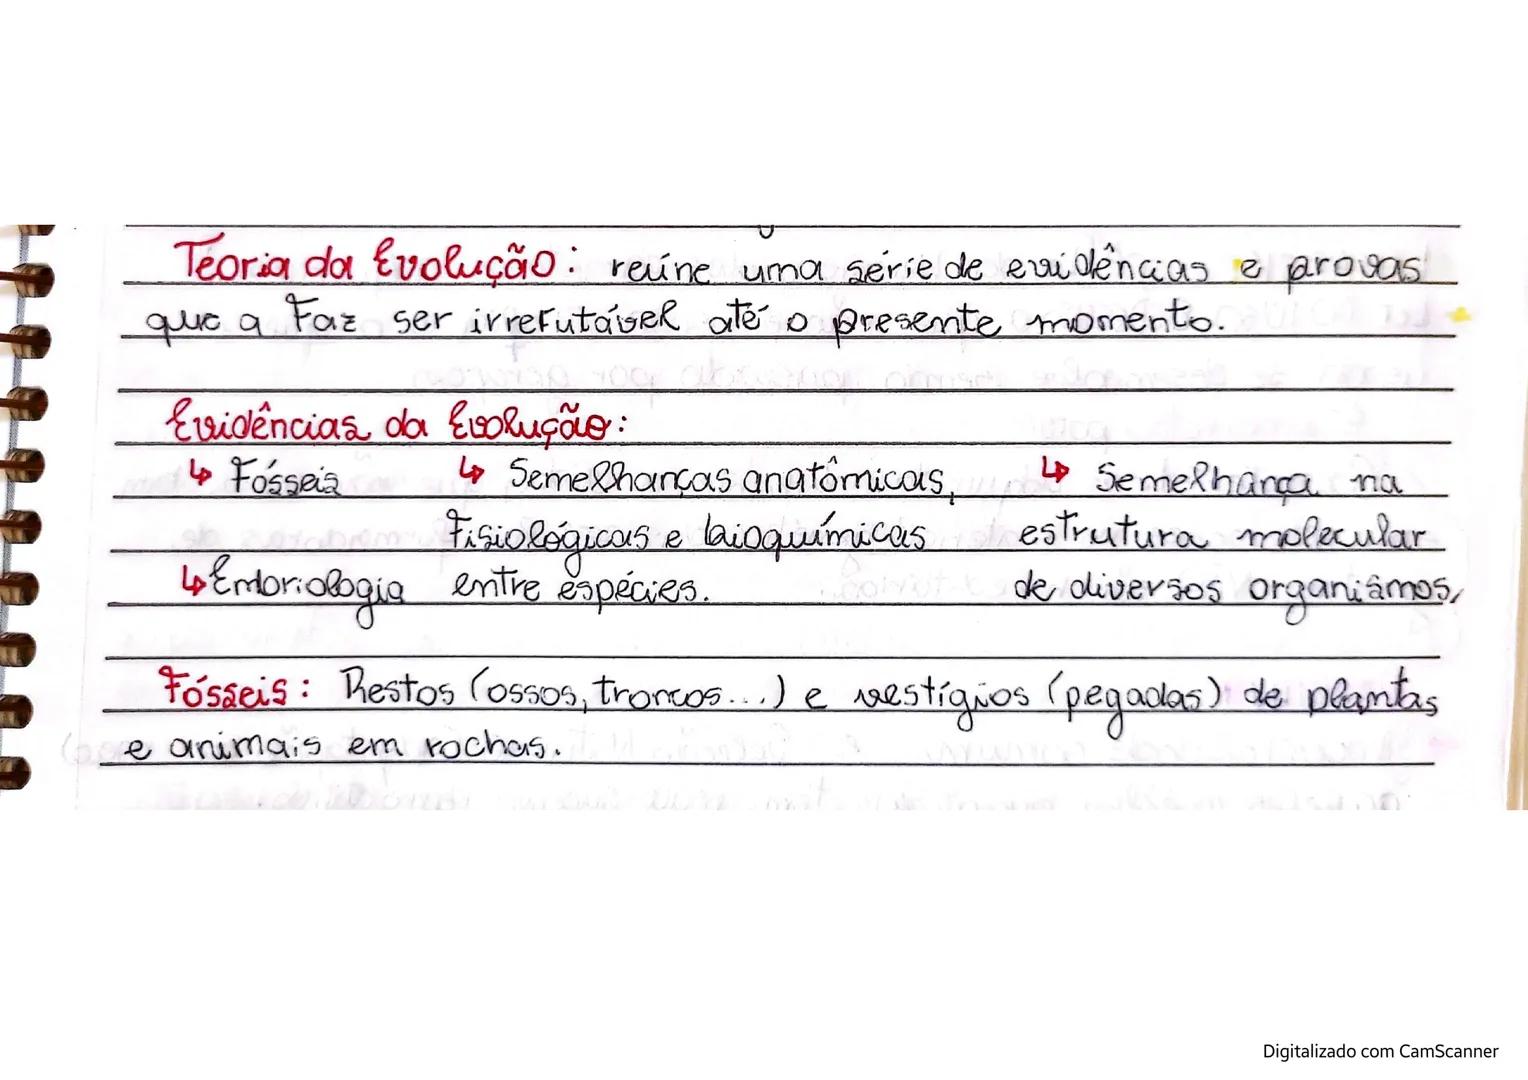 Teoria da Evolução: reúne uma série de evidências e provas
que a faz ser irrefutável até o presente momento.
Evidências da Evolução:
↳ Fósseis ↳ Semelhanças anatômicas, ↳ Semelhança na
fisiológicas e bioquímicas estrutura molecular
↳ Embriologia entre espécies. de diversos organismos,
Fósseis: Restos (ossos, troncos...) e vestígios (pegadas) de plantas
e animais em rochas.
Digitalizado com CamScanner